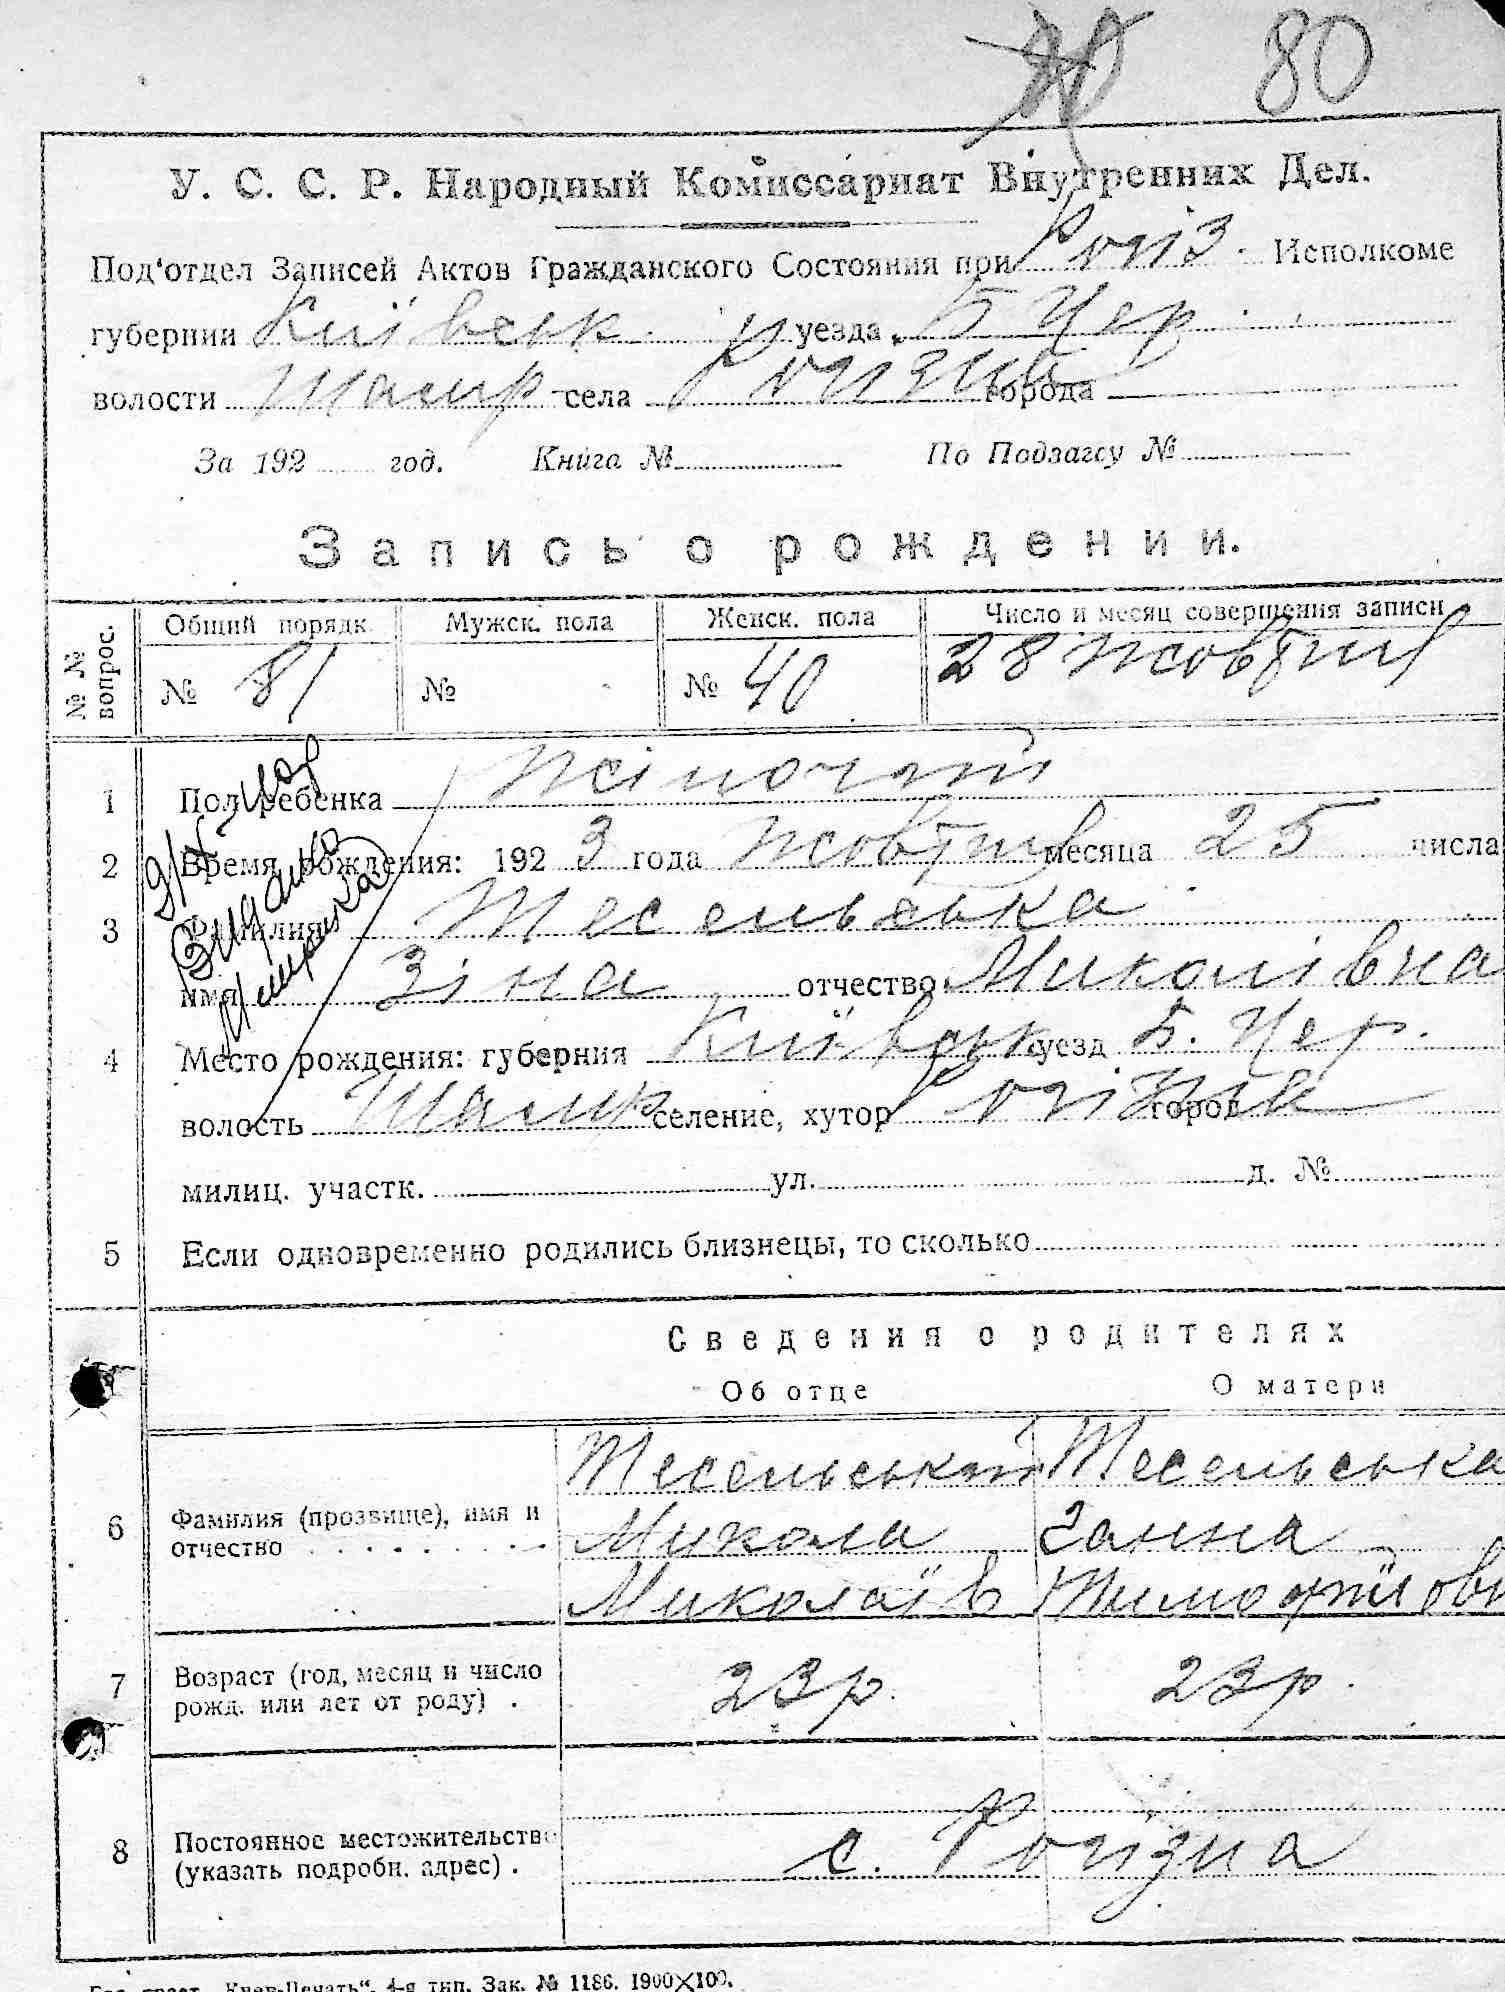 80
У. С. С. Р. Народный Комиссариат Внутренних Дел.
Под'отдел Записей Актов Гражданского Состояния при Рогіз. Исполкоме
губернии Київськ. уезда Б Цер.
волости Шамр села Рогизна города
За 192 год. Книга № По Подзагсу №
Запись о рождении.
№ № вопрос. Общий порядк. Мужск. пола Женск. пола Число и месяц совершения записи
№ 81 № № 40 28 жовтня
1 Пол ребенка жіночат
2 Время рождения: 1923 года жовтня месяца 25 числа
3 Фамилия Тесельська
имя Зіна отчество Миколівна
4 Место рождения: губерния Київськ уезд Б. Цер.
волость Шамр селение, хутор Рогізна город
милиц. участк. ул. д. №
5 Если одновременно родились близнецы, то сколько
Видано
Сведения о родителях
Об отце О матери
Тесельський Тесельська
6 Фамилия (прозвище), имя и Микола Ганна
отчество Миколаїв Тимофіїовн
7 Возраст (год, месяц и число 23 р. 23 р.
рожд. или лет от роду) .
8 Постоянное местожительство с. Рогізна
(указать подробн. адрес) .
Киев-Печать", 4-я тип. Зак. № 1186. 1900×100.